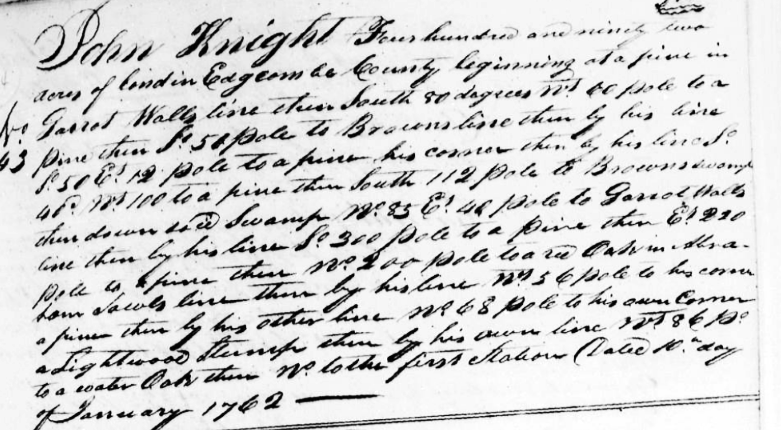 John Knight Four hundred and ninety two
acres of land in Edgcombe County beginning at a pine in
Garrot Walls line then South 80 degrees Wt 60 pole to a
No pine then So 50 pole to Browns line then by his line
43 So 50 Et 12 pole to a pine his corner then by his line So
40d Wt 100 to a pine then South 112 pole to Browns swamp
then down said Swamp No 85 Et 40 pole to Garrot Walls
line then by his line So 300 pole to a pine then Et 220
pole to a pine then No 200 pole to a red Oak in Abra-
ham line then by his line Wt 56 pole to his corner
a pine then by his other line No 68 pole to his own Corner
a Lightwood Stump then by his own line Wt 86 po
to a water Oak then No to the first Station Dated 10th day
of January 1762